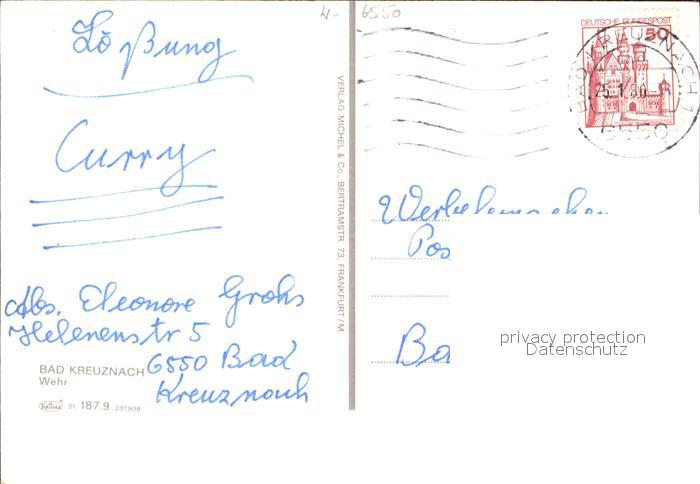 W-
6550
Lößung
Curry
Abs. Eleonore Grohs
Helenenstr 5
6550 Bad
Kreuznach
BAD KREUZNACH
Wehr
Krüger 31 187.9 231908
VERLAG MICHEL & Co., BERTRAMSTR. 73, FRANKFURT/M.
DEUTSCHE BUNDESPOST
50
BAD KREUZNACH 1
25.1.80-18
6550
Pos
Ba
privacy protection
Datenschutz